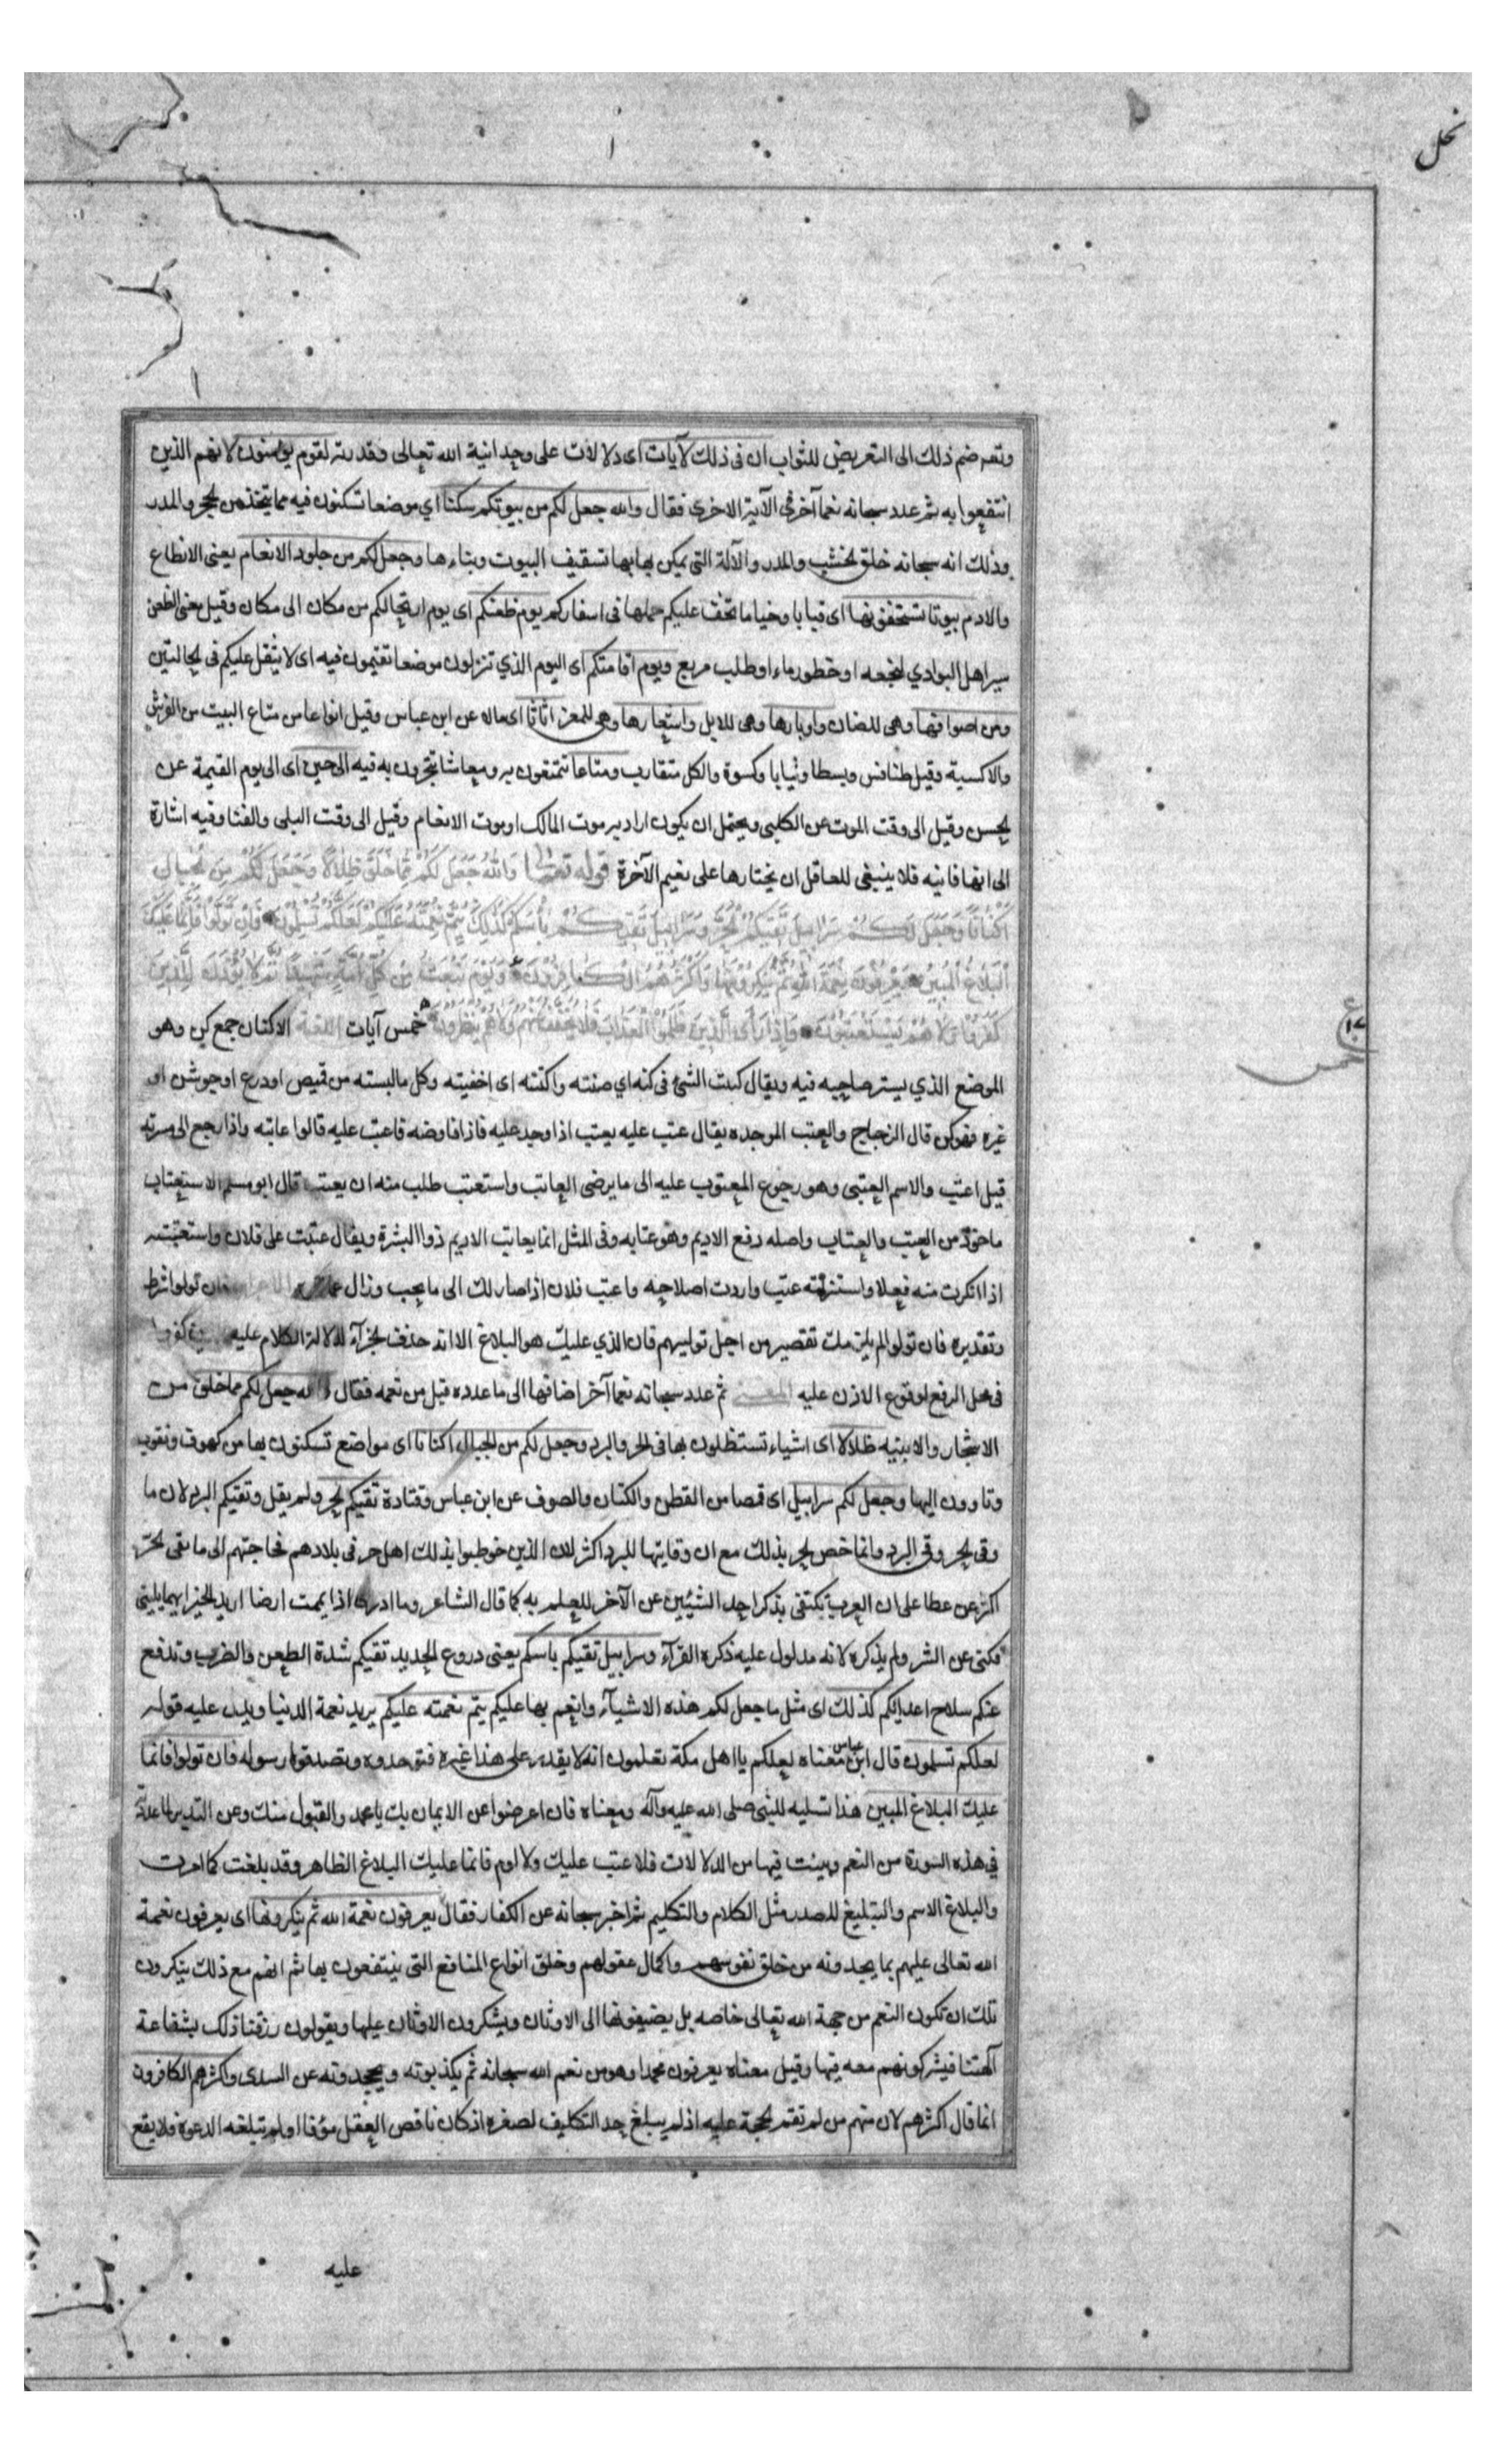 نحل
وتعرضهم ذلك الى التعريض للثواب ان فى ذلك لآيات اى دلالات على وحدانية الله تعالى وقدرته لقوم يؤمنون لانهم الذين
انتفعوا به ثم عدد سبحانه نعما آخر فى الآية الاخرى فقال والله جعل لكم من بيوتكم سكنا اي موضعا تسكنون فيه مما يتخذ من الحجر والمدر
وذلك انه سبحانه خلق الخشب والمدر والآلة التى يمكن بها بها تسقيف البيوت وبناءها وجعل لكم من جلود الانعام يعنى الانطاع
والادم بيوتا تستخفونها اى قبابا وخياما تخف عليكم حملها فى اسفاركم يوم ظعنكم اى يوم ارتحالكم من مكان الى مكان وقيل معنى الظعن
سير اهل البوادي لنجعه او حضور ماء او طلب مربع ويوم اقامتكم اى اليوم الذي تنزلون موضعا تقيمون فيه اى لا يثقل عليكم فى الحالتين
ومن اصوافها وهى للضان واوبارها وهى للابل واشعارها وهى للمعز اثاثا اى مالا عن ابن عباس وقيل انواعا من متاع البيت من الفرش
والاكسية وقيل طنافس وبسطا وثيابا وكسوة والكل متقارب ومتاعا تتمتعون به ومعاشا تتجرون به فيه الى حين اى الى يوم القيمة عن
الحسن وقيل الى وقت الموت عن الكلبى ويحتمل ان يكون اراد به موت المالك او موت الانعام وقيل الى وقت البلى والفنا وفيه اشارة
الى انها فانيه فلا ينبغى للعاقل ان يختارها على نعيم الآخرة قوله تعالى وَاللّٰهُ جَعَلَ لَكُمْ مِمَّا خَلَقَ ظِلَالًا وَجَعَلَ لَكُمْ مِنَ الْجِبَالِ
اَكْنَانًا وَجَعَلَ لَكُمْ سَرَابِيلَ تَقِيكُمُ الْحَرَّ وَسَرَابِيلَ تَقِيكُمْ بَأْسَكُمْ كَذٰلِكَ يُتِمُّ نِعْمَتَهُ عَلَيْكُمْ لَعَلَّكُمْ تُسْلِمُونَ فَاِنْ تَوَلَّوْا فَاِنَّمَا عَلَيْكَ
الْبَلَاغُ الْمُبِينُ يَعْرِفُونَ نِعْمَةَ اللّٰهِ ثُمَّ يُنْكِرُونَهَا وَاَكْثَرُهُمُ الْكَافِرُونَ وَيَوْمَ نَبْعَثُ مِنْ كُلِّ اُمَّةٍ شَهِيدًا ثُمَّ لَا يُؤْذَنُ لِلَّذِينَ
كَفَرُوا وَلَا هُمْ يُسْتَعْتَبُونَ وَاِذَا رَأَى الَّذِينَ ظَلَمُوا الْعَذَابَ فَلَا يُخَفَّفُ عَنْهُمْ وَلَا هُمْ يُنْظَرُونَ خمس آيات اللغة الاكنان جمع كن وهو
الموضع الذي يستر صاحبه فيه ويقال كننت الشئ فى كنه اي صنته واكننته اى اخفيته وكل ما لبسته من قميص او درع او جوشن او
غيره فهو كن قال الزجاج والعتب الموجده يقال عتب عليه يعتب اذا وجد عليه فاذا فاوضه فاعتب عليه قالوا عاتبه واذا رجع الى مسرته
قيل اعتب والاسم العتبى وهو رجوع المعتوب عليه الى ما يرضى العاتب واستعتب طلب منه ان يعتب قال ابو مسلم الاستعتاب
ماخوذ من العتب والعتاب واصله دفع الاديم وهو عتابه وفى المثل انما يعاتب الاديم ذوا البشرة ويقال عتبت على فلان واستعتبته
اذا انكرت منه فعلا واستنزلته عتب واردت اصلاحه واعتب فلان اذا صار لك الى ما يحب وزال فان تولوا شرط
وتقديره فان تولوا لم يلزمك تقصير من اجل توليهم فان الذي عليك هو البلاغ الا انه حذف الجزآء لدلالة الكلام عليه كفروا
فى محل الرفع لوقوع الاذن عليه المعنى ثم عدد سبحانه نعما آخر اضافها الى ما عدده قبل من نعمه فقال والله جعل لكم مما خلق من
الاشجار والابنيه ظلالا اى اشياء تستظلون بها فى الحر والبرد وجعل لكم من الجبال اكنانا اى مواضع تسكنون بها من كهوف ونقوب
وتاوون اليها وجعل لكم سرابيل اى قمصا من القطن والكتان والصوف عن ابن عباس وقتادة تقيكم الحر ولم يقل وتقيكم البرد لان ما
وقى الحر وقى البرد وانما خص الحر بذلك مع ان وقايتها للبرد اكثر لان الذين خوطبوا بذلك اهل حر فى بلادهم فحاجتهم الى ما يقى الحر
اكثر عن عطا على ان العرب تكتفى بذكر احد الشيئين عن الآخر للعلم به كما قال الشاعر وما ادرى اذا يممت ارضا اريد الخير ايهما يلينى
فكنى عن الشر ولم يذكره لانه مدلول عليه ذكره الفرآء وسرابيل تقيكم باسكم يعنى دروع الحديد تقيكم شدة الطعن والضرب وتدفع
عنكم سلاح اعدائكم كذلك اى مثل ما جعل لكم هذه الاشيآء وانعم بها عليكم يتم نعمته عليكم يريد نعمة الدنيا ويدل عليه قوله
لعلكم تسلمون قال ابن عباس معناه لعلكم يا اهل مكة تعلمون انه لا يقدر على هذا غيره فتوحدوه وتصدقوا رسوله فان تولوا فانما
عليك البلاغ المبين هذا تسليه للنبى صلى الله عليه وآله ومعناه فان اعرضوا عن الايمان بك يا محمد والقبول منك وعن التدبر لما عددته
فى هذه السورة من النعم وبينت فيها من الدلالات فلا عتب عليك ولا لوم فانما عليك البلاغ الظاهر وقد بلغت كما امرت
والبلاغ الاسم والتبليغ المصدر مثل الكلام والتكليم ثم اخبر سبحانه عن الكفار فقال يعرفون نعمة الله ثم ينكرونها اى يعرفون نعمة
الله تعالى عليهم بما يجدونه من خلق نفوسهم واكمال عقولهم وخلق انواع المنافع التى ينتفعون بها ثم انهم مع ذلك ينكرون
تلك ان تكون النعم من جهة الله تعالى خاصه بل يضيفونها الى الاوثان ويشكرون الاوثان عليها ويقولون رزقنا ذلك بشفاعة
آلهتنا فيشركونهم معه فيها وقيل معناه يعرفون محمدا وهو من نعم الله سبحانه ثم يكذبونه ويجحدونه عن السدى واكثرهم الكافرون
انما قال اكثرهم لان منهم من لم تقم الحجة عليه اذ لم يبلغ حد التكليف لصغره اذ كان ناقص العقل مؤفا او لم تبلغه الدعوة فلا يقع
عليه